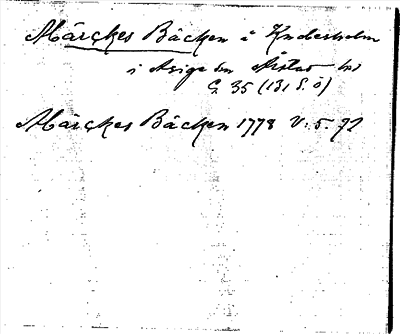 Märckes Bäcken å Kndesholm
i Asige sn Årstad hd
G. 35 (131 S. Ö)
Märckes Bäcken 1778 V: 5. 72